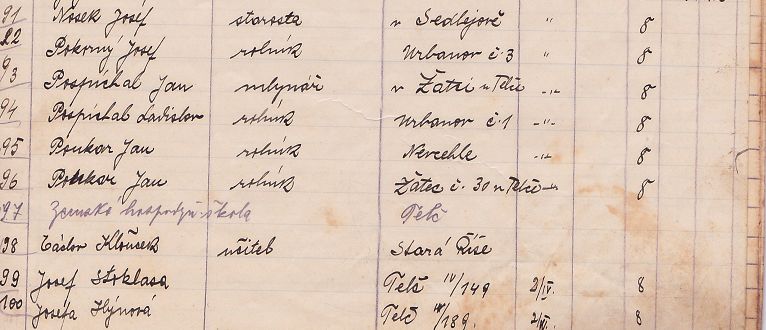 91 Nosek Josef starosta v Sedlejově " 8
92 Pokorný Josef rolník Urbanov č. 3 " 8
93 Pospíchal Jan mlynář v Žatci u Telče -"- 8
94 Pospíchal Ladislav rolník Urbanov č. 1 -"- 8
95 Poukar Jan rolník Nevcehle -"- 8
96 Poukar Jan rolník Žatec č. 30 u Telče -"- 8
97 Zemská hospodyň. škola Telč
98 Václav Kloušek učitel Stará Říše
99 Josef Stoklasa Telč IV/149 2/IV. 8
100 Josefa Hýnová Telč IV/189. 2/IV. 8